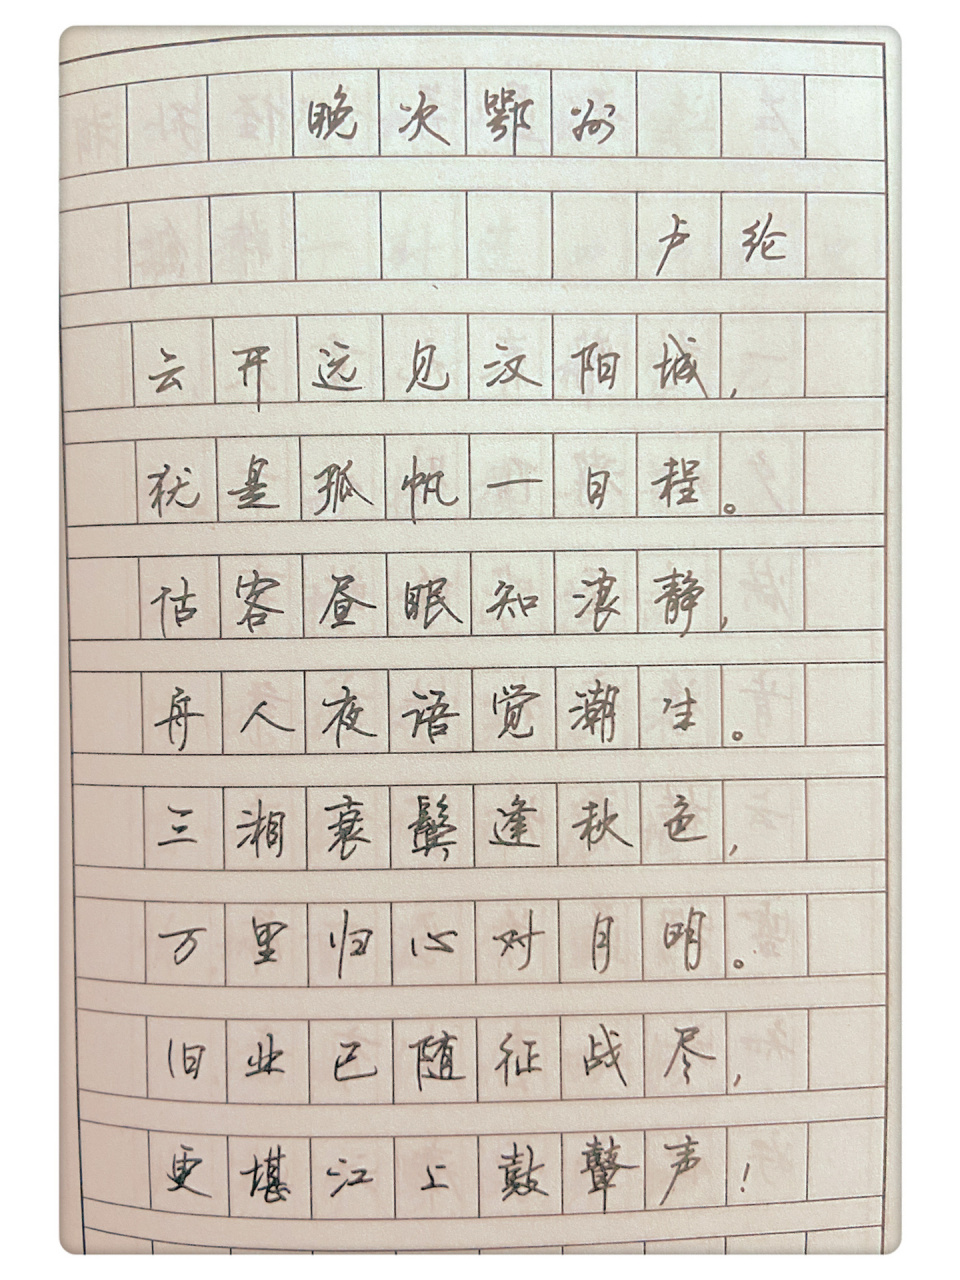 晚次鄂州
卢纶
云开远见汉阳城，
犹是孤帆一日程。
估客昼眠知浪静，
舟人夜语觉潮生。
三湘衰鬓逢秋色，
万里归心对月明。
旧业已随征战尽，
更堪江上鼓鼙声！